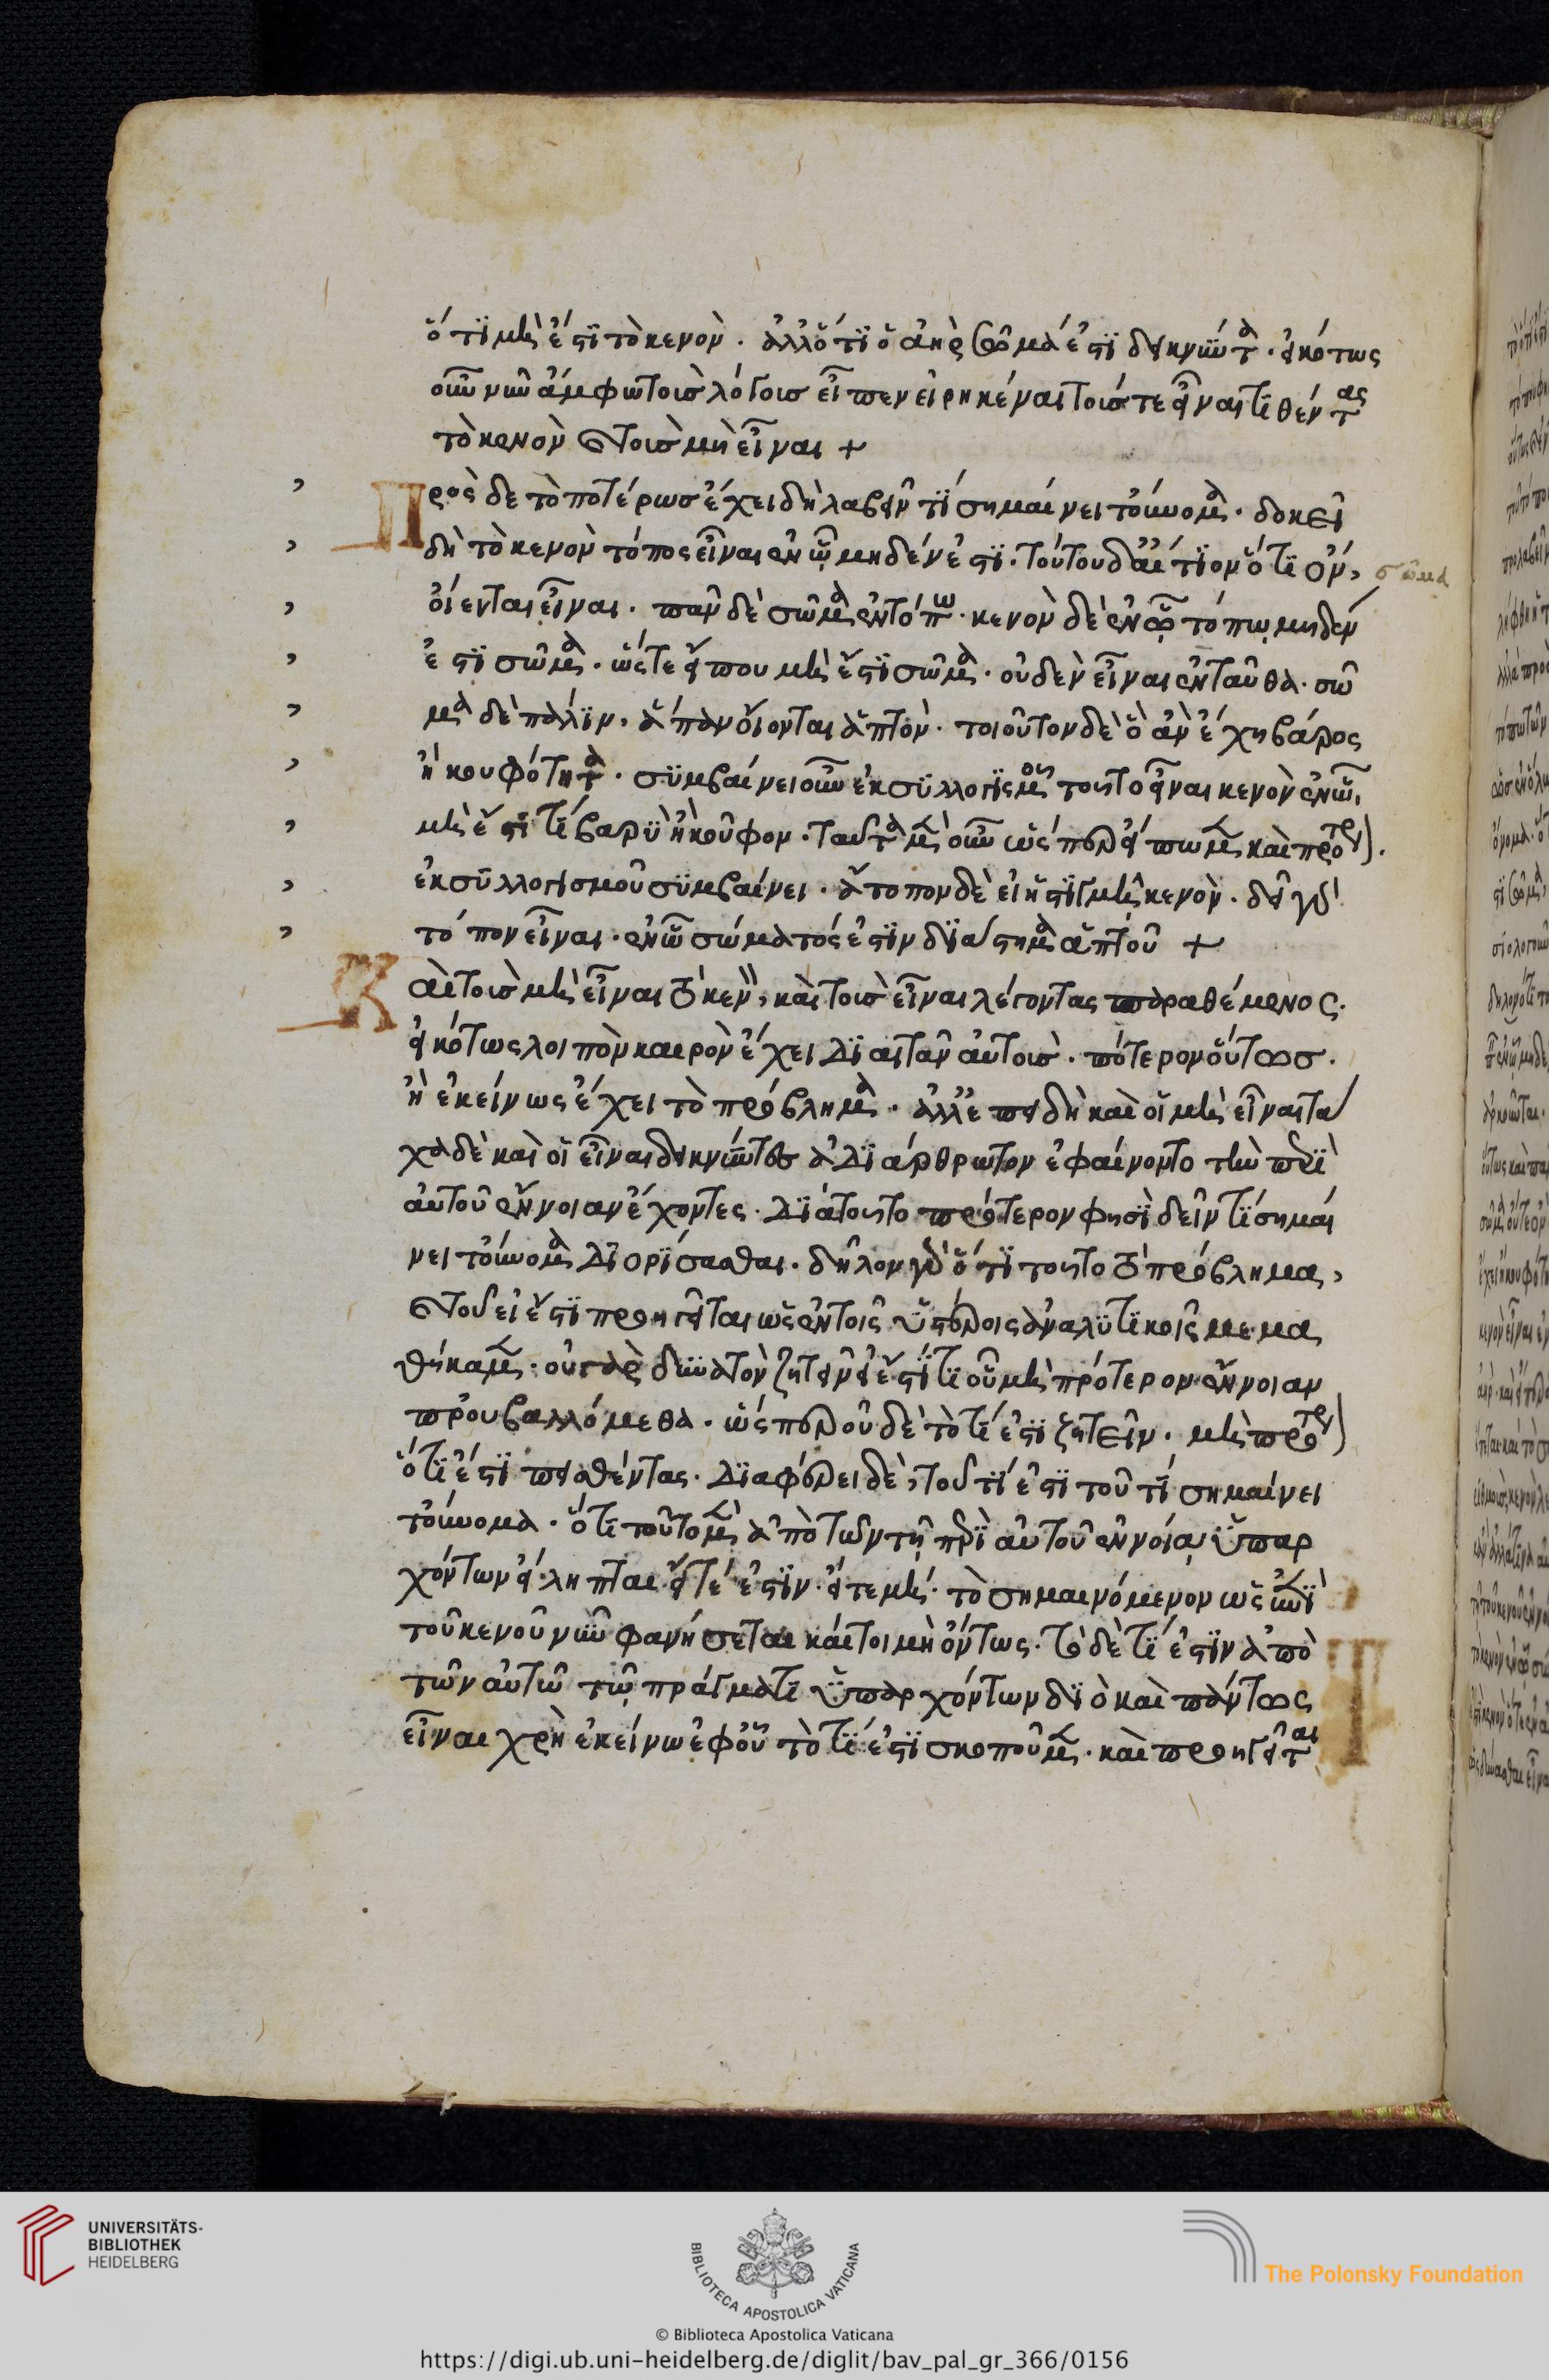 ὅτι μὴ ἔστι τὸ κενὸν. ἀλλ' ὅτι ὁ ἀὴρ σῶμά ἐστι δεικνύντα. εἰκότως
οὖν νῦν ἀμφω τοῖς λόγοις εἶπεν εἰρηκέναι τοῖς τε εἶναι τιθέντας
τὸ κενὸν καὶ τοῖς μὴ εἶναι +
Πρὸς δὲ τὸ ποτέρως ἔχει δὴ λαβεῖν τί σημαίνει τοὔνομα. δοκεῖ
δὴ τὸ κενὸν τόπος εἶναι ἐν ᾧ μηδέν ἐστι. τούτου δ' αἴτιον ὅτι ὄν,
σῶμα
οἴονται εἶναι. πᾶν δὲ σῶμα ἐν τόπω. κενὸν δὲ ἐν ᾧ τόπῳ μηδέν
ἐστι σῶμα. ὥστε εἴ που μὴ ἔστι σῶμα. οὐδὲν εἶναι ἐνταῦθα. σῶ
μα δὲ πάλιν. ἅπαν οἴονται ἁπτὸν. τοιοῦτον δὲ ὃ ἂν ἔχη βάρος
ἢ κουφότητα. συμβαίνει οὖν ἐκ συλλογισμοῦ τοῦτο εἶναι κενὸν ἐν ᾧ,
μὴ ἔστι τι βαρὺ ἢ κοῦφον. ταῦτα μὲν οὖν ὥσπερ εἴπωμεν καὶ πρότερον.
ἐκ συλλογισμοῦ συμβαίνει. ἄτοπον δὲ εἰ ἡ στιγμὴ κενὸν. δεῖ γὰρ
τόπον εἶναι. ἐν ᾧ σώματός ἐστιν διάστημα ἁπτοῦ +
Καὶ τοῖς μὴ εἶναι τὸ κενὸν, καὶ τοῖς εἶναι λέγοντας παραθέμενος.
εἰκότως λοιπὸν καιρὸν ἔχει διαιτᾶν αὐτοῖς. πότερον οὕτως.
ἢ ἐκείνως ἔχει τὸ πρόβλημα. ἀλλ' ἐπειδὴ καὶ οἱ μὴ εἶναι τά
χα δὲ καὶ οἱ εἶναι δεικνύντες ἀδιάρθρωτον ἐφαίνοντο τὴν περὶ
αὐτοῦ ἔννοιαν ἔχοντες. διὰ τοῦτο πρότερον φησὶ δεῖν τί σημαί
νει τοὔνομα διορίσασθαι. δῆλον γὰρ ὅτι τοῦτο τὸ πρόβλημα,
καὶ τοῦ εἰ ἔστι προηγεῖται ὡς ἐν τοῖς ὑστέροις ἀναλυτικοῖς μεμα
θήκαμεν. οὐ γὰρ δυνατὸν ζητεῖν εἰ ἔστι τι οὗ μὴ πρότερον ἔννοιαν
προὐβαλλόμεθα. ὥσπερ οὐδὲ τὸ τί ἐστι ζητεῖν. μὴ πρότερον
ὅτι ἔστι πεισθέντας. διαφέρει δὲ, τοῦ τί ἐστι τοῦ τί σημαίνει
τοὔνομα. ὅτι τοῦτο μὲν ἀπὸ τῶν τῇ περὶ αὐτοῦ ἐννοίᾳ ὑπαρ
χόντων εἴληπται. εἴτέ ἐστιν. εἴτε μή. τὸ σημαινόμενον ὡς ἐπὶ
τοῦ κενοῦ νῦν φανήσεται καίτοι μὴ ὄντως. τὸ δὲ τί ἐστιν ἀπὸ
τῶν αὐτῶ τῷ πράγματι ὑπαρχόντων διὸ καὶ πάντως
εἶναι χρὴ ἐκείνω ἐφ' οὗ τὸ τί ἐστι σκοποῦμεν. καὶ προηγεῖται
UNIVERSITÄTS-
BIBLIOTHEK
HEIDELBERG
BIBLIOTECA APOSTOLICA VATICANA
The Polonsky Foundation
© Biblioteca Apostolica Vaticana
https://digi.ub.uni-heidelberg.de/diglit/bav_pal_gr_366/0156